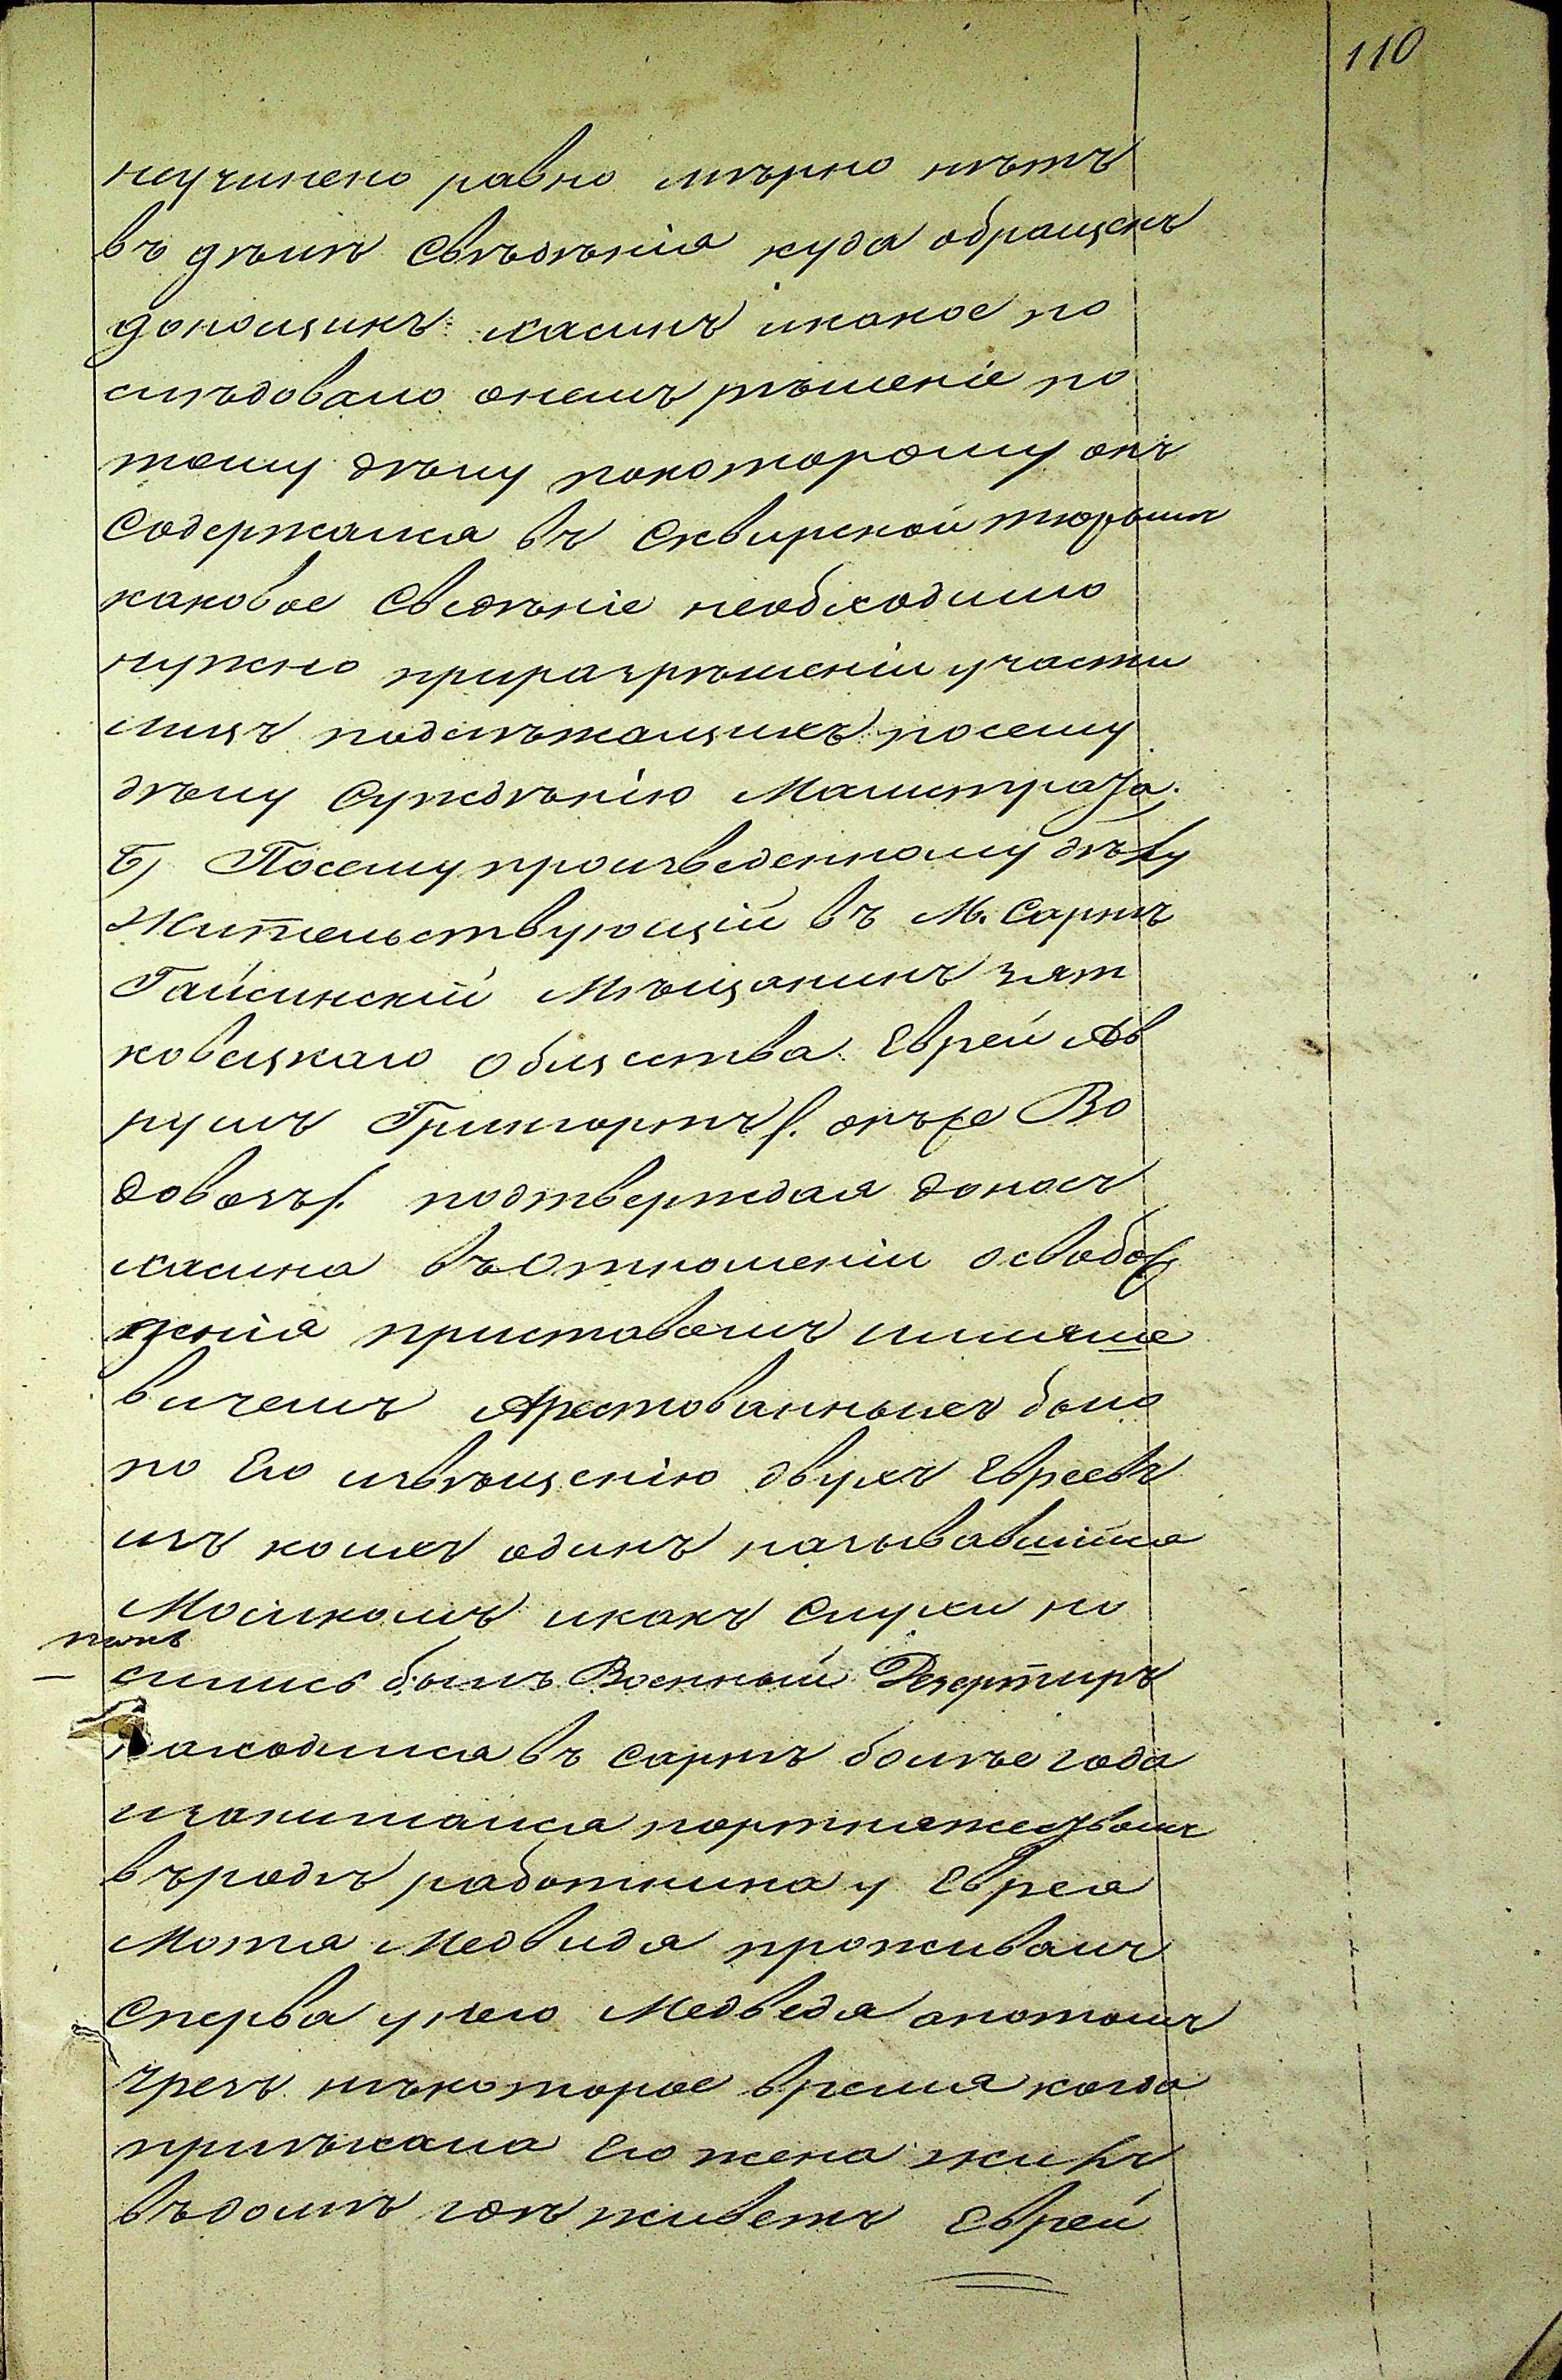 110
неучинено равно мѣрно нѣтъ
въ дѣлѣ Свѣдѣнія куда обращенъ
доносчикъ Хасинъ икакое по
слѣдовало онемъ рѣшеніе по
тому дѣлу покоторому онъ
Содержался въ Сквирской тюрьмѣ
каковое Свѣдѣніе необходимо
нужно приразрѣшеніи участи
лицъ подлѣжащихъ посему
дѣлу Сужденію Магистрата.
Б) Посему произведенному дѣлу
Жительствующій въ М. Сарнѣ
Гайсинскій Мѣщанинъ зят
ковецкаго Общества Еврей Ав
румъ онъже Во
подтверждая доносъ
Хасина въОтношеніи освобож
денія приставомъ
вичемъ Арестованныхъ было
по Его извѣщенію двухъ Евреевъ
изъ коихъ одинъ называвшійся
Мошкомъ икакъ Слухи но
такъ
сились былъ Военный Дезертиръ
находился въ Сарнѣ болѣе года
изанимался портняжествомъ
въродѣ работника у Еврея
Мотя Медвидя проживалъ
Сперва унего Медведя апотомъ
чрезъ нѣкоторое время когда
приѣхала Его жена жилъ
въдомѣ гдѣ живетъ Еврей